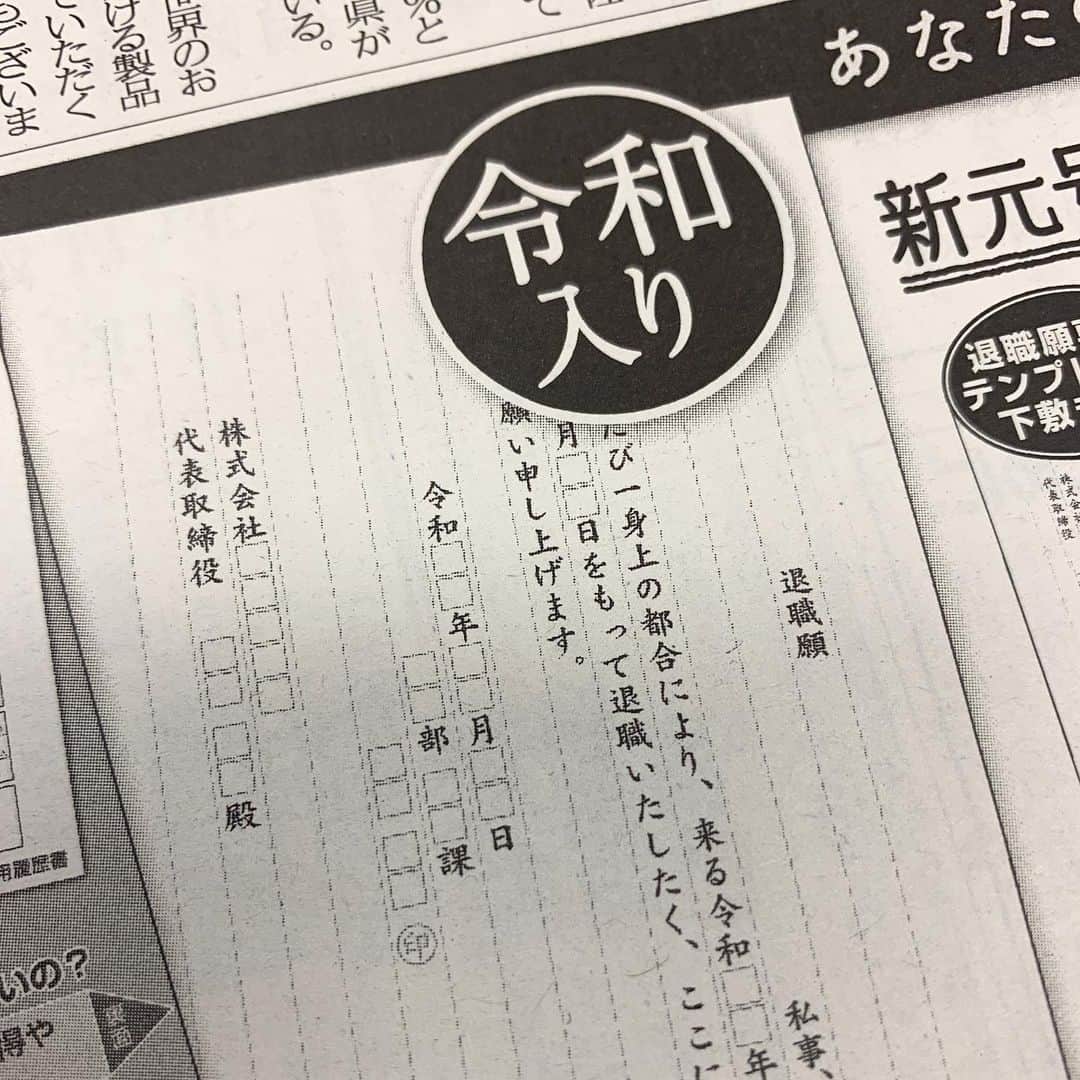 世界のお
ける製品
ていただく
もございま
県が
いる。
あなた
令和
入り
新元号
退職願
テンプレ
下敷
株式会社
代表取締役
退職願
私事、
たび一身上の都合により、来る令和
年
月
日をもって退職いたしたく、ここに
願い申し上げます。
令和
年
月
日
部
課
印
株式会社
代表取締役
殿
用履歴書
いの?
得や